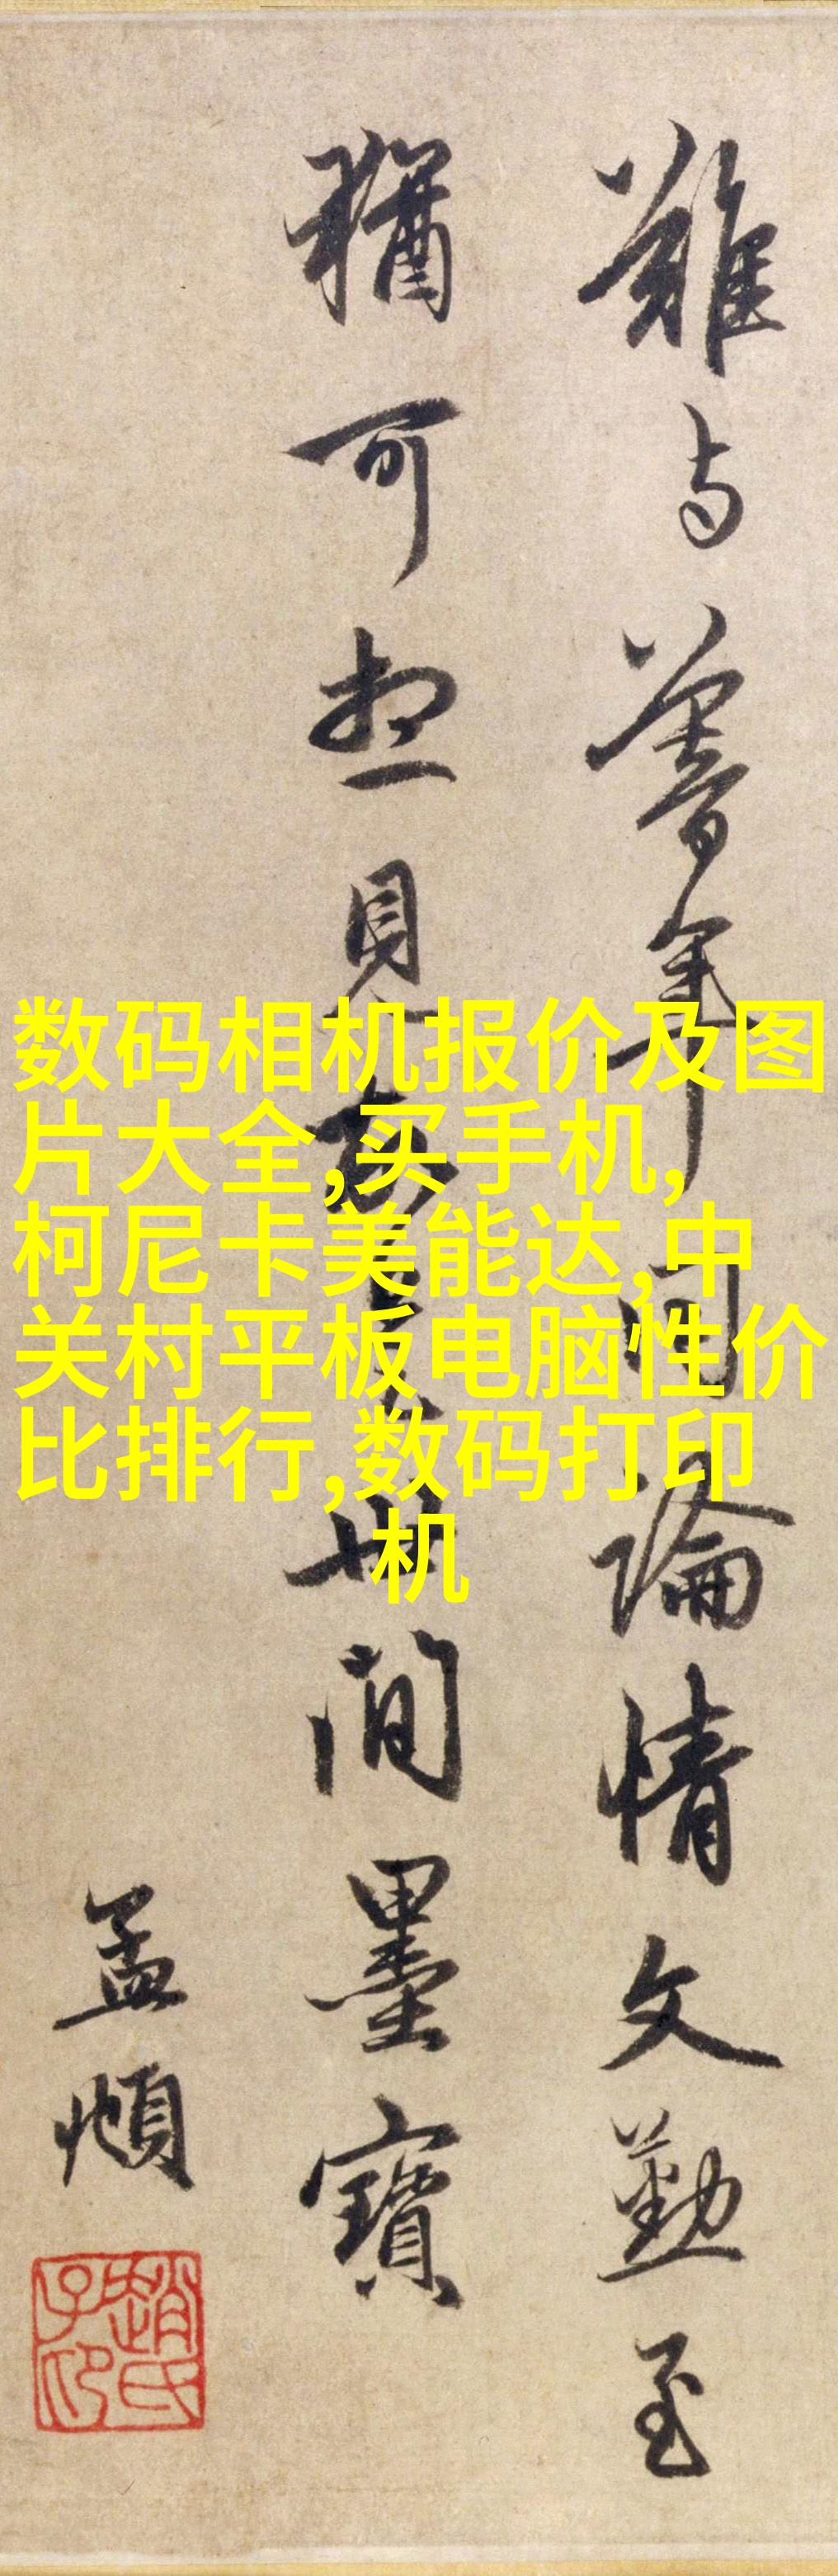 難与善年同論情文勤至
猶可想見
世间墨寶
孟頫
趙氏子印
数码相机报价及图
片大全,买手机,
柯尼卡美能达,中
关村平板电脑性价
比排行,数码打印
机